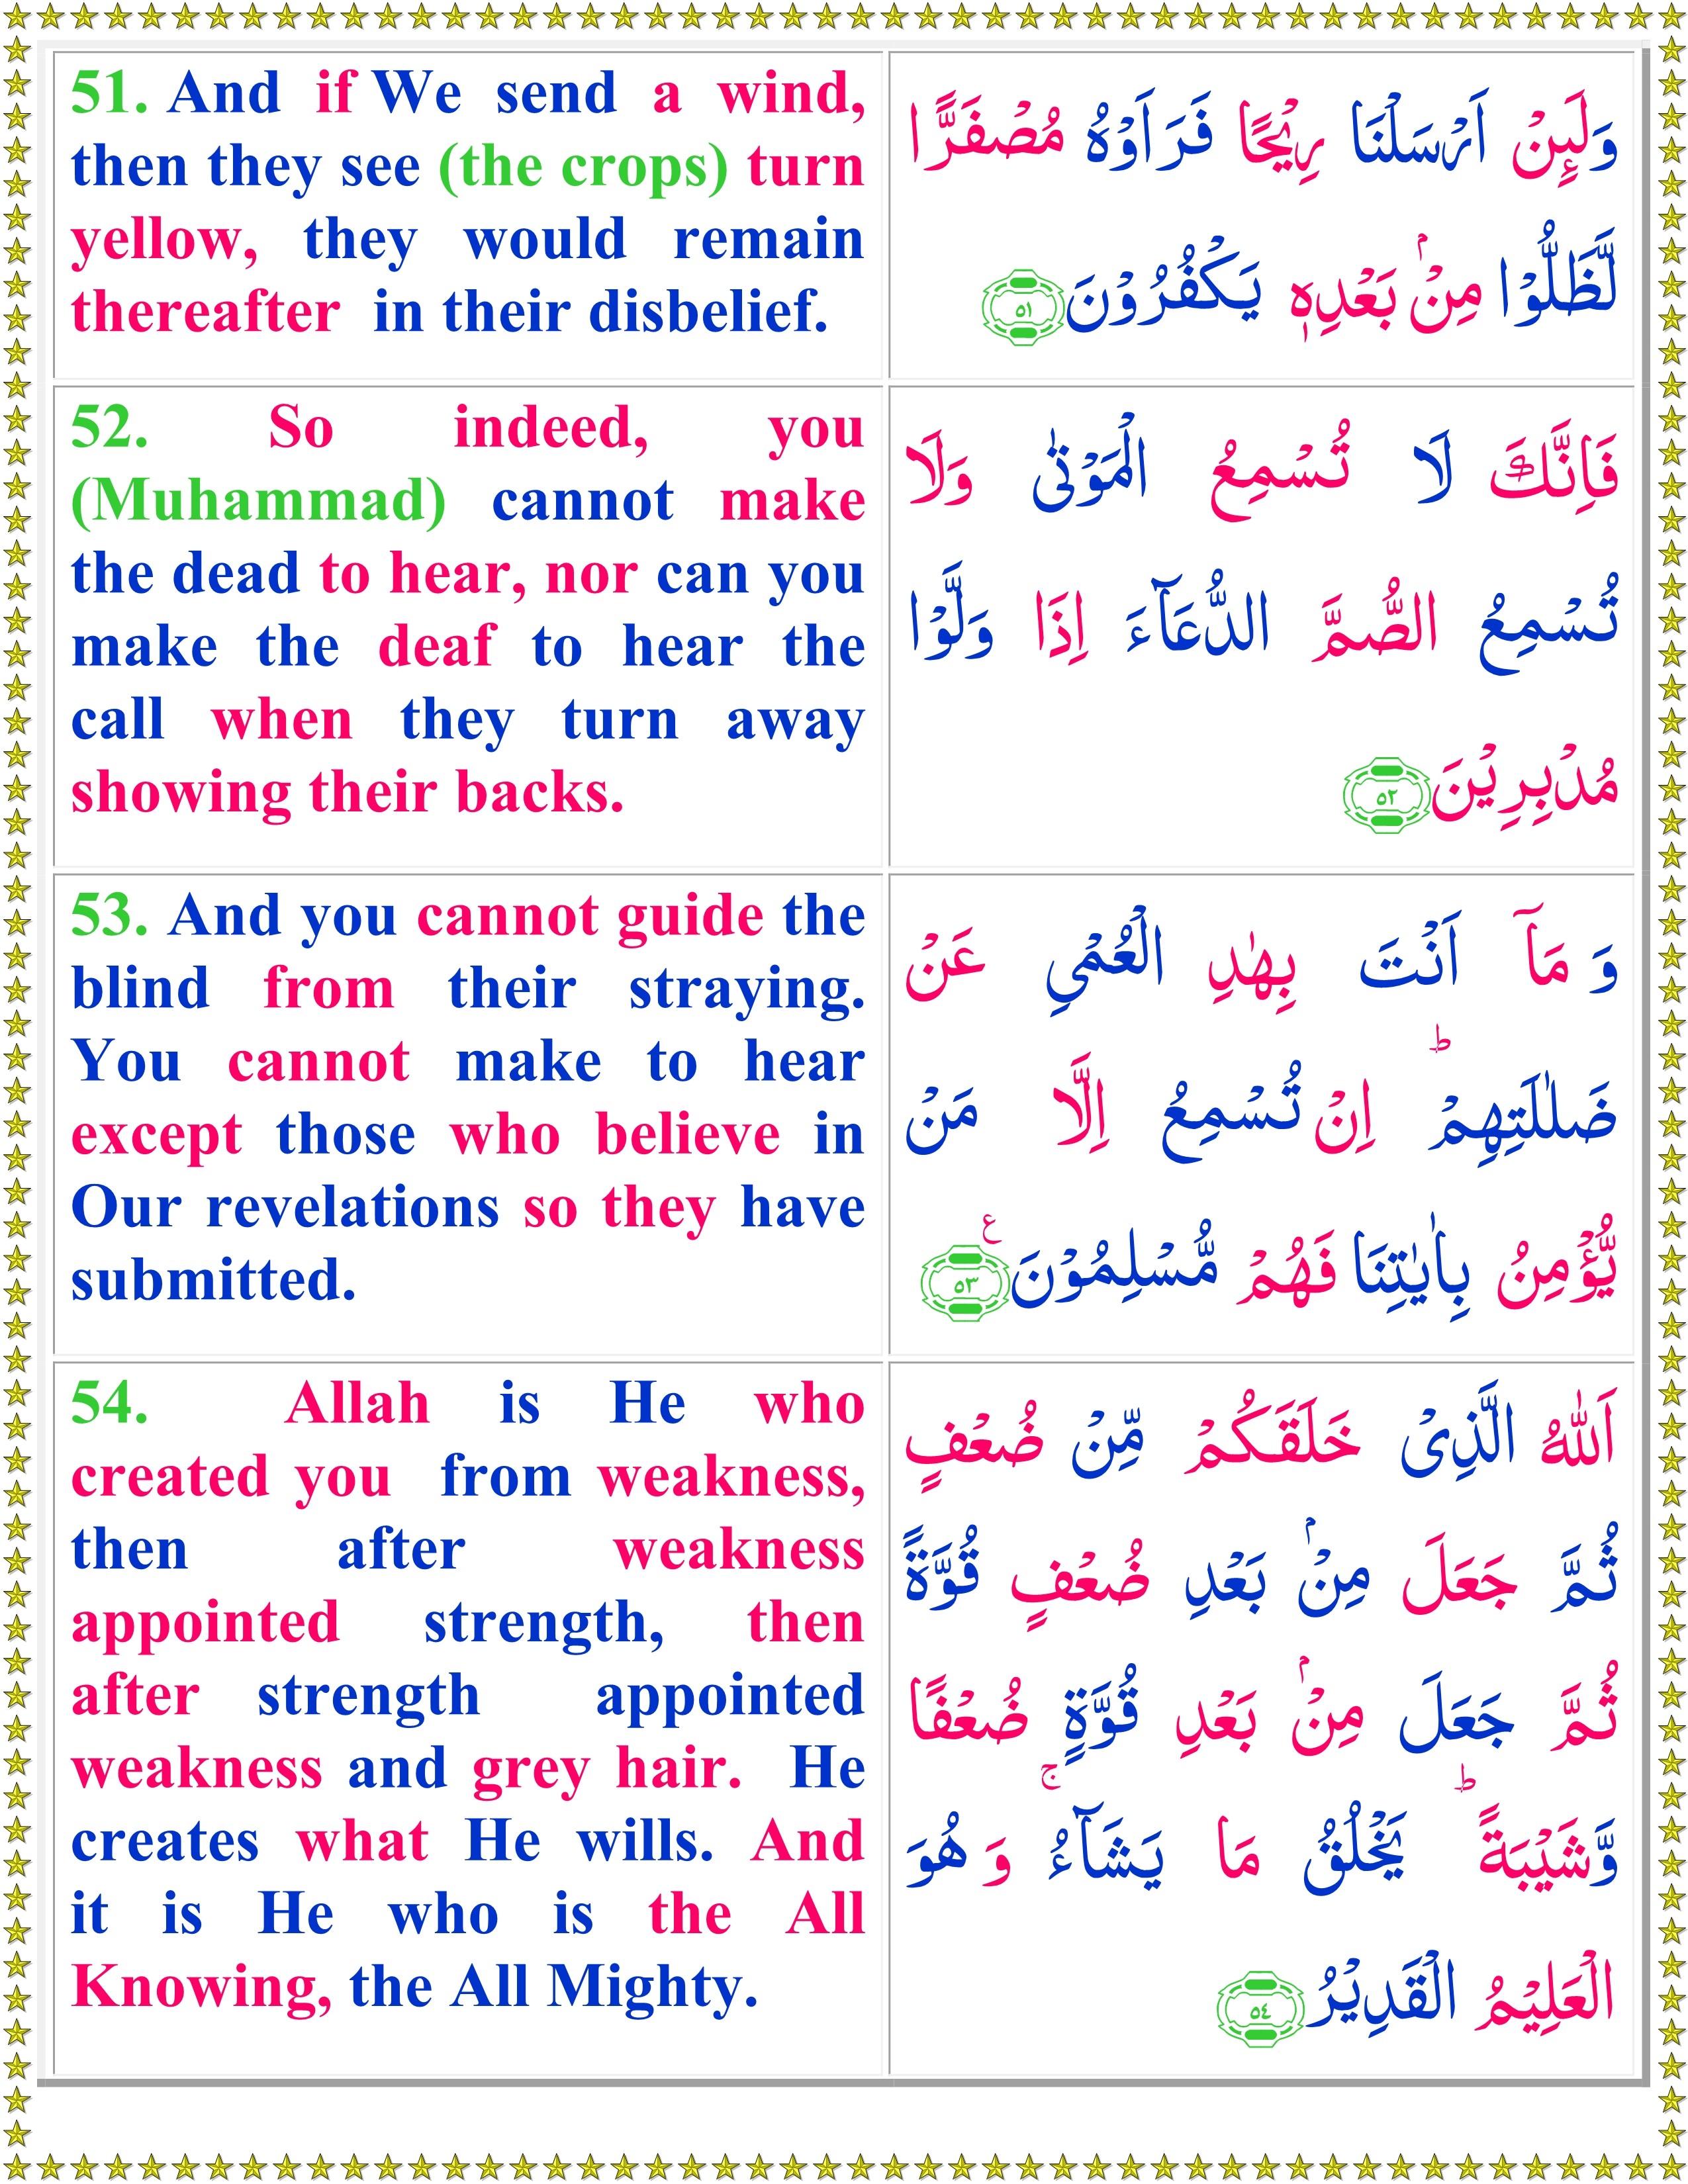 51. And if We send a wind,
then they see (the crops) turn
yellow, they would remain
thereafter in their disbelief.
وَلَىِٕنْ اَرْسَلْنَا رِيْحًا فَرَاَوْهُ مُصْفَرًّا
لَّظَلُّوْا مِنْۢ بَعْدِهٖ يَكْفُرُوْنَ ۵۱
52. So indeed, you
(Muhammad) cannot make
the dead to hear, nor can you
make the deaf to hear the
call when they turn away
showing their backs.
فَاِنَّكَ لَا تُسْمِعُ الْمَوْتٰى وَلَا
تُسْمِعُ الصُّمَّ الدُّعَآءَ اِذَا وَلَّوْا
مُدْبِرِيْنَ ۵۲
53. And you cannot guide the
blind from their straying.
You cannot make to hear
except those who believe in
Our revelations so they have
submitted.
وَ مَاۤ اَنْتَ بِهٰدِ الْعُمْيِ عَنْ
ضَلٰلَتِهِمْ ؕ اِنْ تُسْمِعُ اِلَّا مَنْ
يُّؤْمِنُ بِاٰيٰتِنَا فَهُمْ مُّسْلِمُوْنَ ۵۳ ع
54. Allah is He who
created you from weakness,
then after weakness
appointed strength, then
after strength appointed
weakness and grey hair. He
creates what He wills. And
it is He who is the All
Knowing, the All Mighty.
اَللّٰهُ الَّذِىْ خَلَقَكُمْ مِّنْ ضُعْفٍ
ثُمَّ جَعَلَ مِنْۢ بَعْدِ ضُعْفٍ قُوَّةً
ثُمَّ جَعَلَ مِنْۢ بَعْدِ قُوَّةٍ ضُعْفًا
وَّشَيْبَةً ؕ يَخْلُقُ مَا يَشَآءُ ۚ وَ هُوَ
الْعَلِيْمُ الْقَدِيْرُ ۵٤